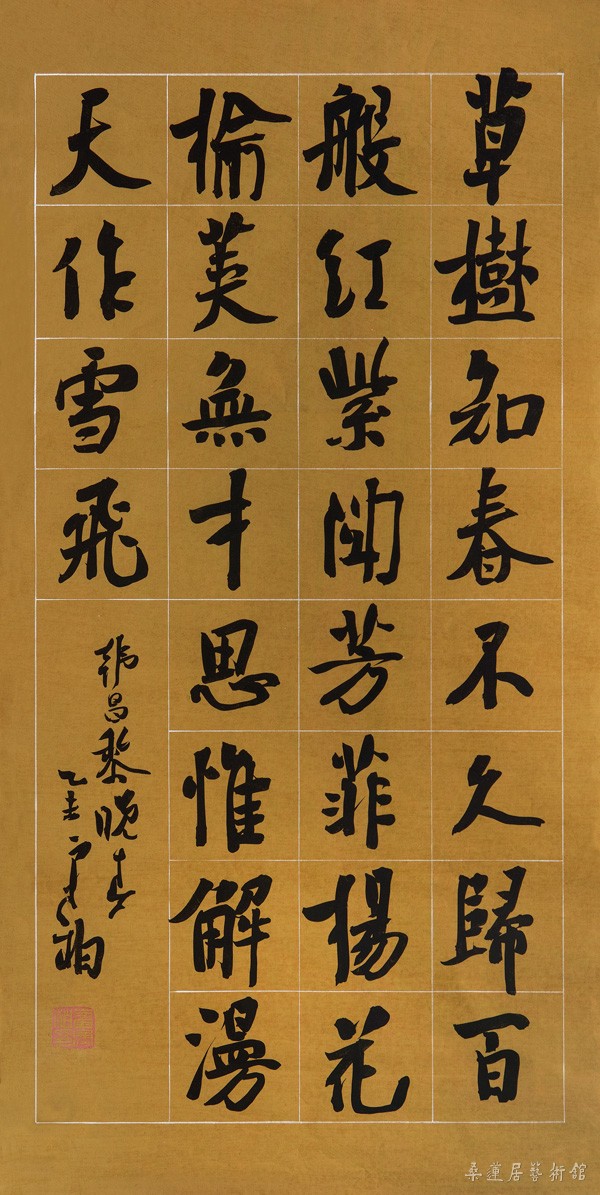 草樹知春不久歸百
般紅紫鬥芳菲楊花
榆莢無才思惟解漫
天作雪飛
韓昌黎晚春
乙亥
柏
桑蓮居藝術館